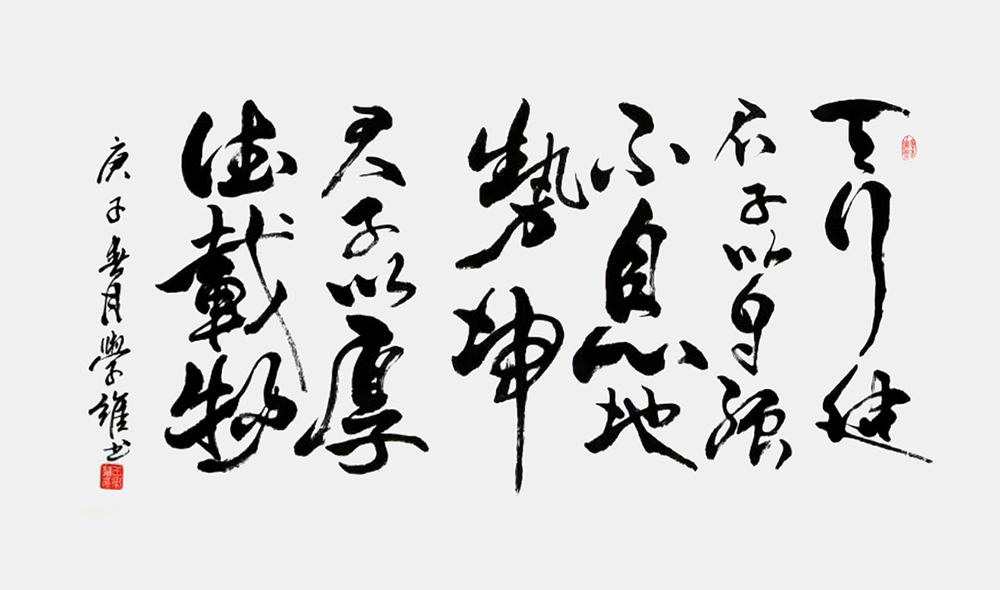 天行健
君子以自强
不息地
勢坤
君子以厚
德載物
庚子春月學維书